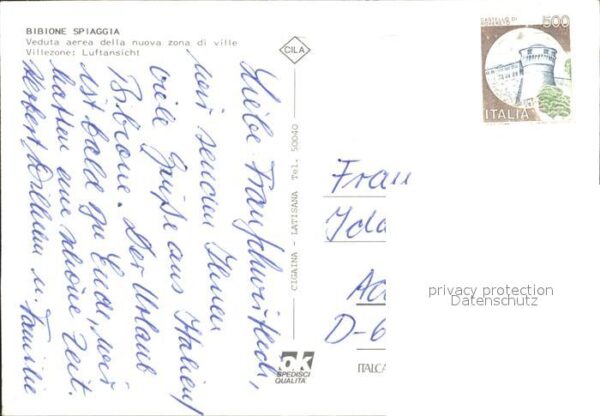 BIBIONE SPIAGGIA
Veduta aerea della nuova zona di ville
Villezone: Luftansicht
CILA
500
CASTELLO DI ROVERETO
ITALIA
Liebe
wir senden Ihnen
viele Grüße aus Italien
Bibione. Der Urlaub
ist bald zu Ende, wir
hatten eine schöne Zeit.
Herbert u. Familie
CIGAINA - LATISANA Tel. 50040
Frau
Ida
D-6
privacy protection
Datenschutz
ok
SPEDISCI
QUALITA'
ITALCA